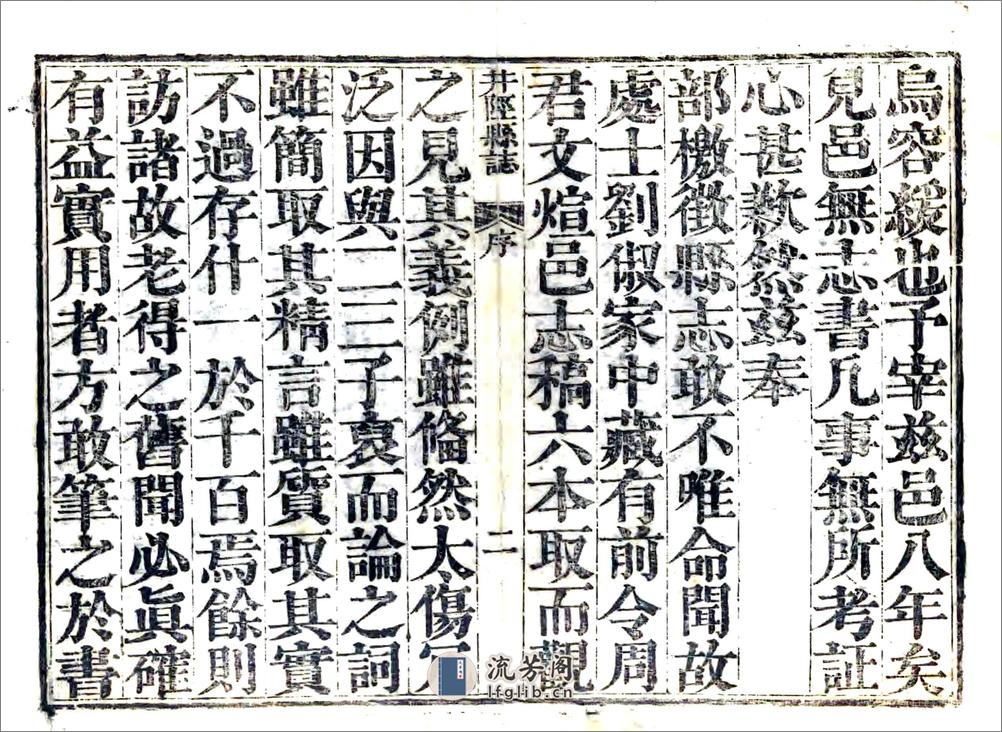 烏容緩也予宰兹邑八年矣
見邑無志書凡事無所考証
心甚歉然兹奉
部檄徵縣志敢不唯命聞故
處士劉俶家中藏有前令周
君文煊邑志稿六本取而觀
井陘縣誌 序 二
之見其義例雖偹然太傷
泛因與二三子裒而論之詞
雖簡取其精言雖質取其實
不過存什一於千百焉餘則
訪諸故老得之舊聞必眞確
有益實用者方敢筆之於書
流芳阁
lfglib.cn